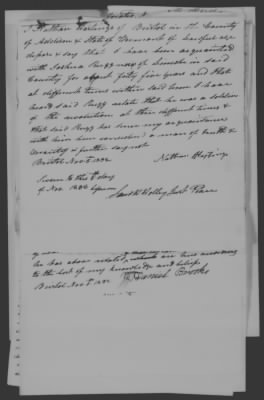 I Nathan Hastings of Bristol in the County
of Addison & State of Vermont of lawful age
depose & say that I have been acquainted
with Joshua Rugg now of Lincoln in said
County for about forty five years and that
at different times within said term I have
heard said Rugg relate that he was a soldier
of the revolution at three different times &
that said Rugg has since my acquaintance
with him been considered a man of truth &
veracity & further say not
Bristol Nov 5 1832
Nathan Hastings
Sworn to this 5 day
of Nov. 1832 before
Just Peace
he has above related, are true according
to the best of my knowledge and belief
Bristol Nov 5 1832
Daniel Brooks